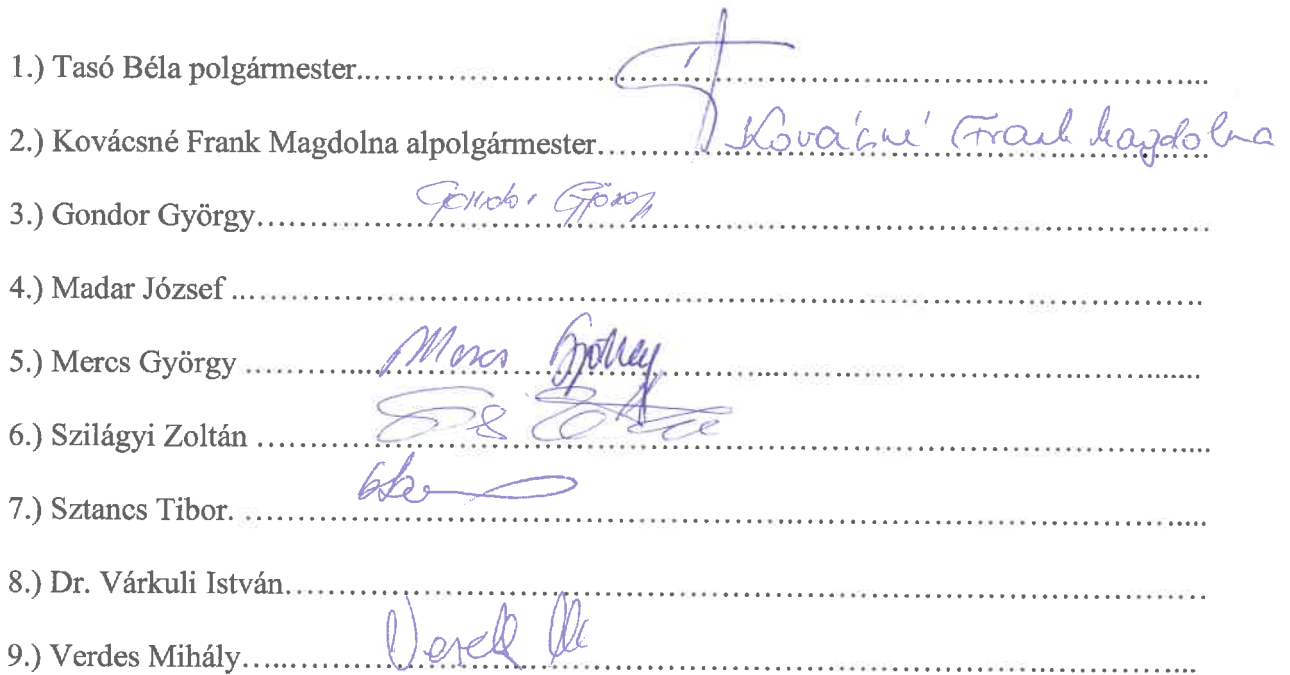 1.) Tasó Béla polgármester................................................
2.) Kovácsné Frank Magdolna alpolgármester................ Kovácsné Frank Magdolna
3.) Gondor György................ Gondor György
4.) Madar József ................................................
5.) Mercs György ................ Mercs György
6.) Szilágyi Zoltán ................................................
7.) Sztancs Tibor. ................................................
8.) Dr. Várkuli István................................................
9.) Verdes Mihály................................................